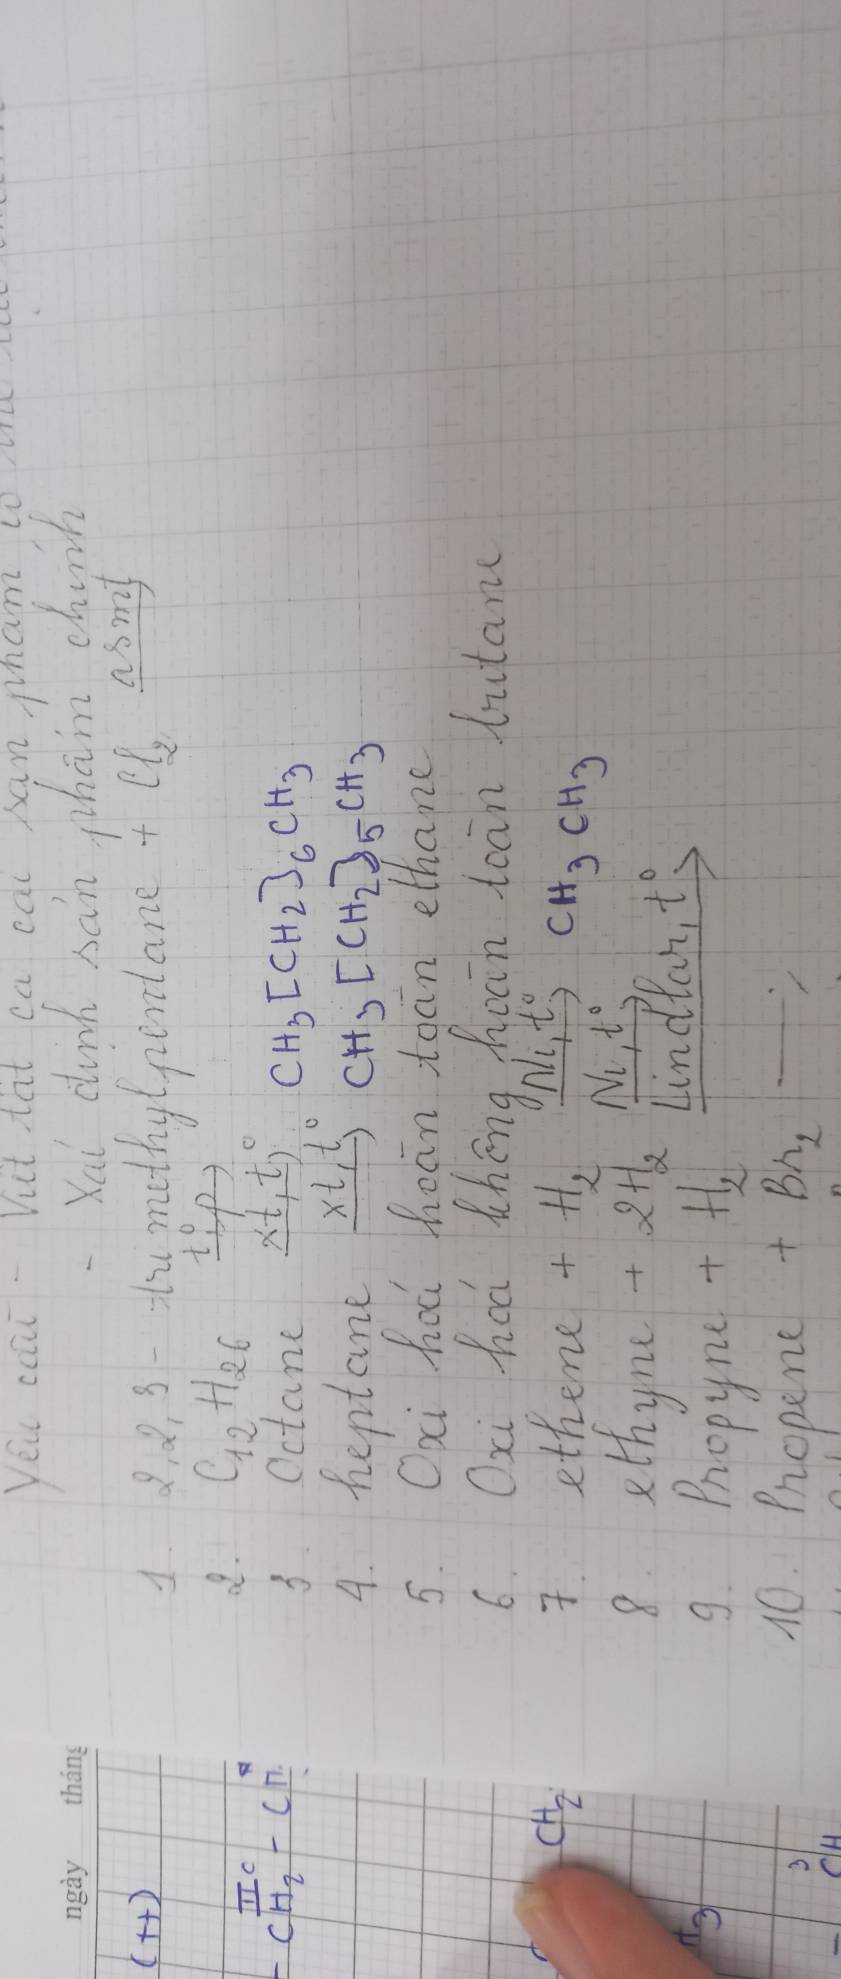 Yêu cầu - Viết tất cả các sản phẩm có thể
- Xác định sản phẩm chính
1. 2,2,3 - trimethylpentane + Cl2 asmt
2. C12H26 t°, p
3. Octane xt, t° CH3[CH2]6CH3
4. heptane xt, t° CH3[CH2]5CH3
5. Oxi hoá hoàn toàn ethane
6. Oxi hoá không hoàn toàn butane
7. ethene + H2 Ni, t° CH3CH3
8. ethyne + 2H2 Ni, t°
9. Propyne + H2 Lindlar, t° →
10. Propene + Br2 →
ngày tháng
(++)
- CH2 - CH
II C
CH2
H3
3
- CH